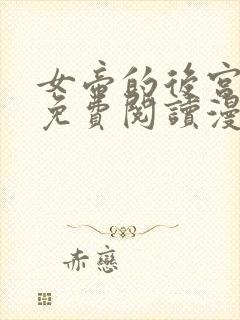 女帝的後宮
免費閱讀漫
赤戀